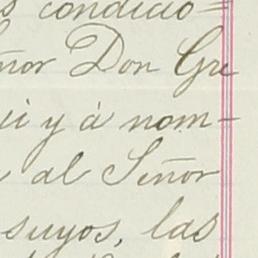 s condicio=
ñor Don Gre
ui y á nom-
al Señor
suyos, las